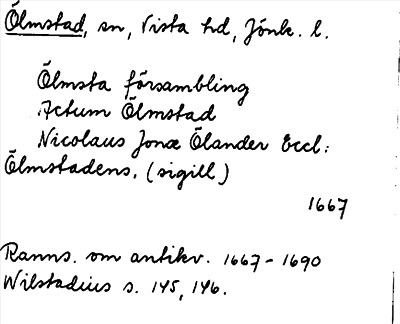 Ölmstad, sn, Vista hd, Jönk. l.
Ölmsta försambling
Actum Ölmstad
Nicolaus Jonæ Ölander Eccl:
Ölmstadens. (sigill)
1667
Ranns. om antikv. 1667-1690
Wilstadius s. 145, 146.